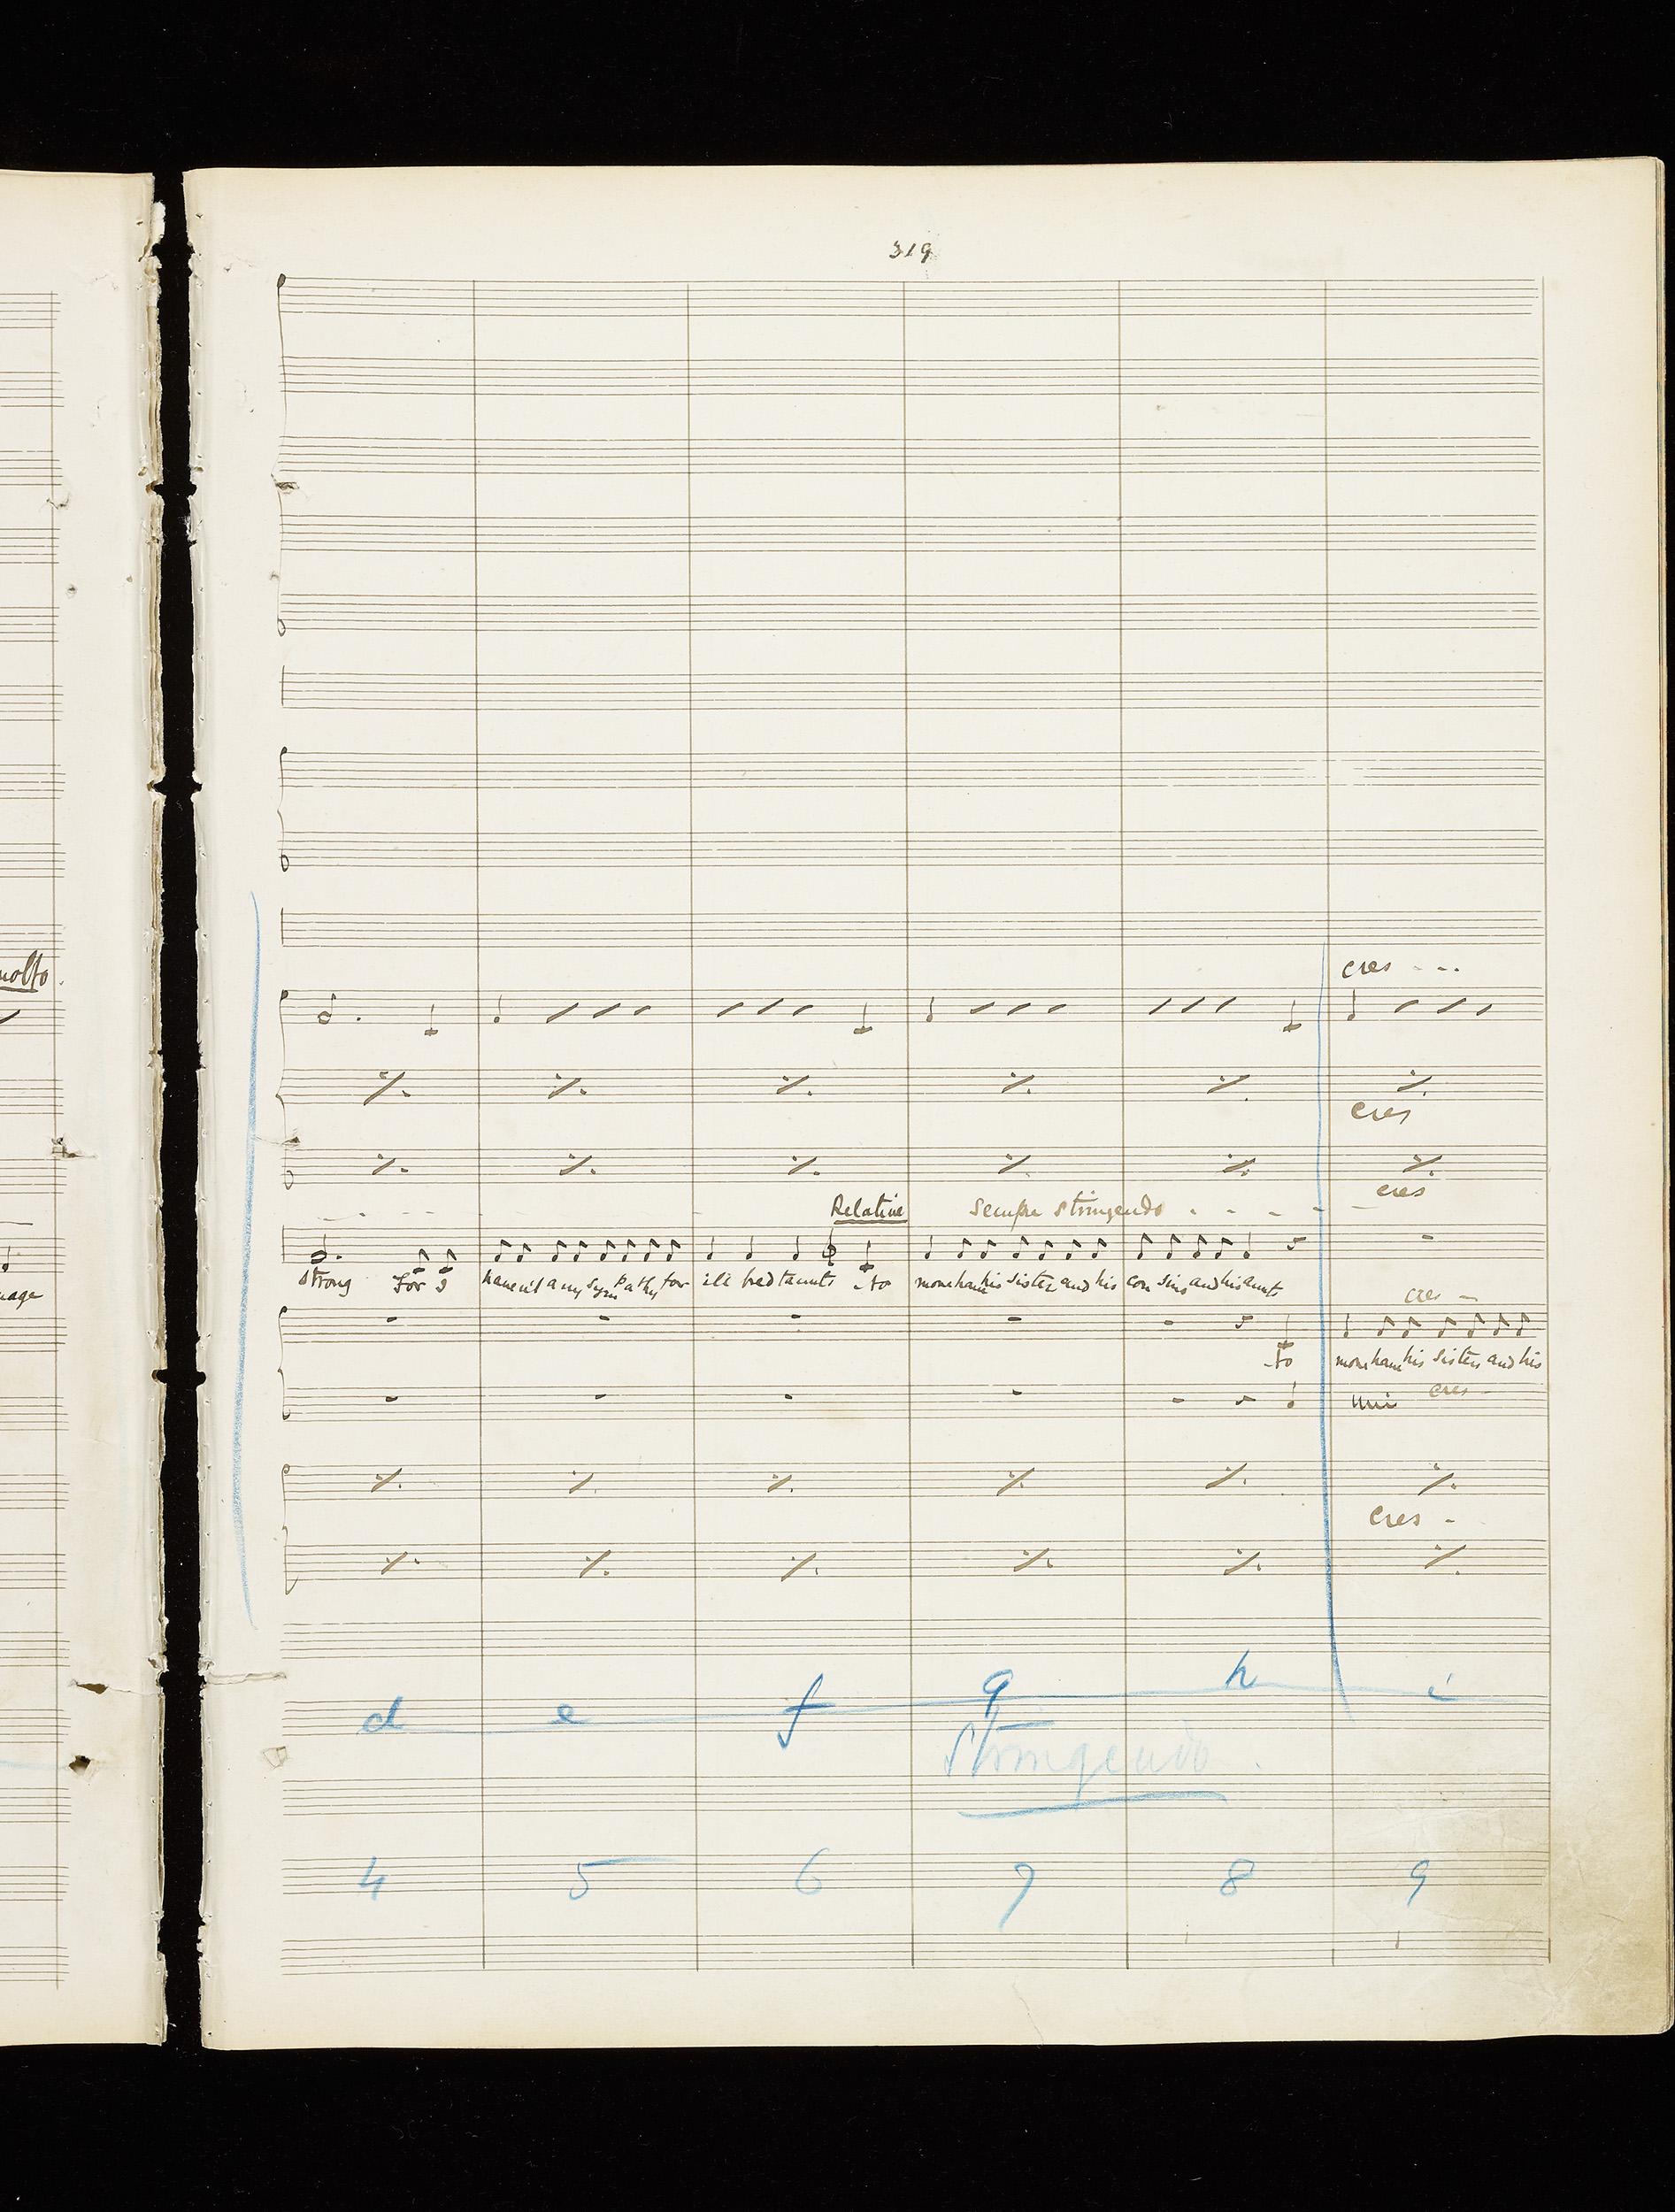 319
molto.
cres - - -
cres
cres
Relative sempre stringendo - - - -
Strong For I haven't any sympathy for ill bred taunts to
more than his sister and his cousins and his aunts
uage
cres -
to more than his sister and his
uni cres
cres -
d e f g h i
Stringendo.
4 5 6 7 8 9